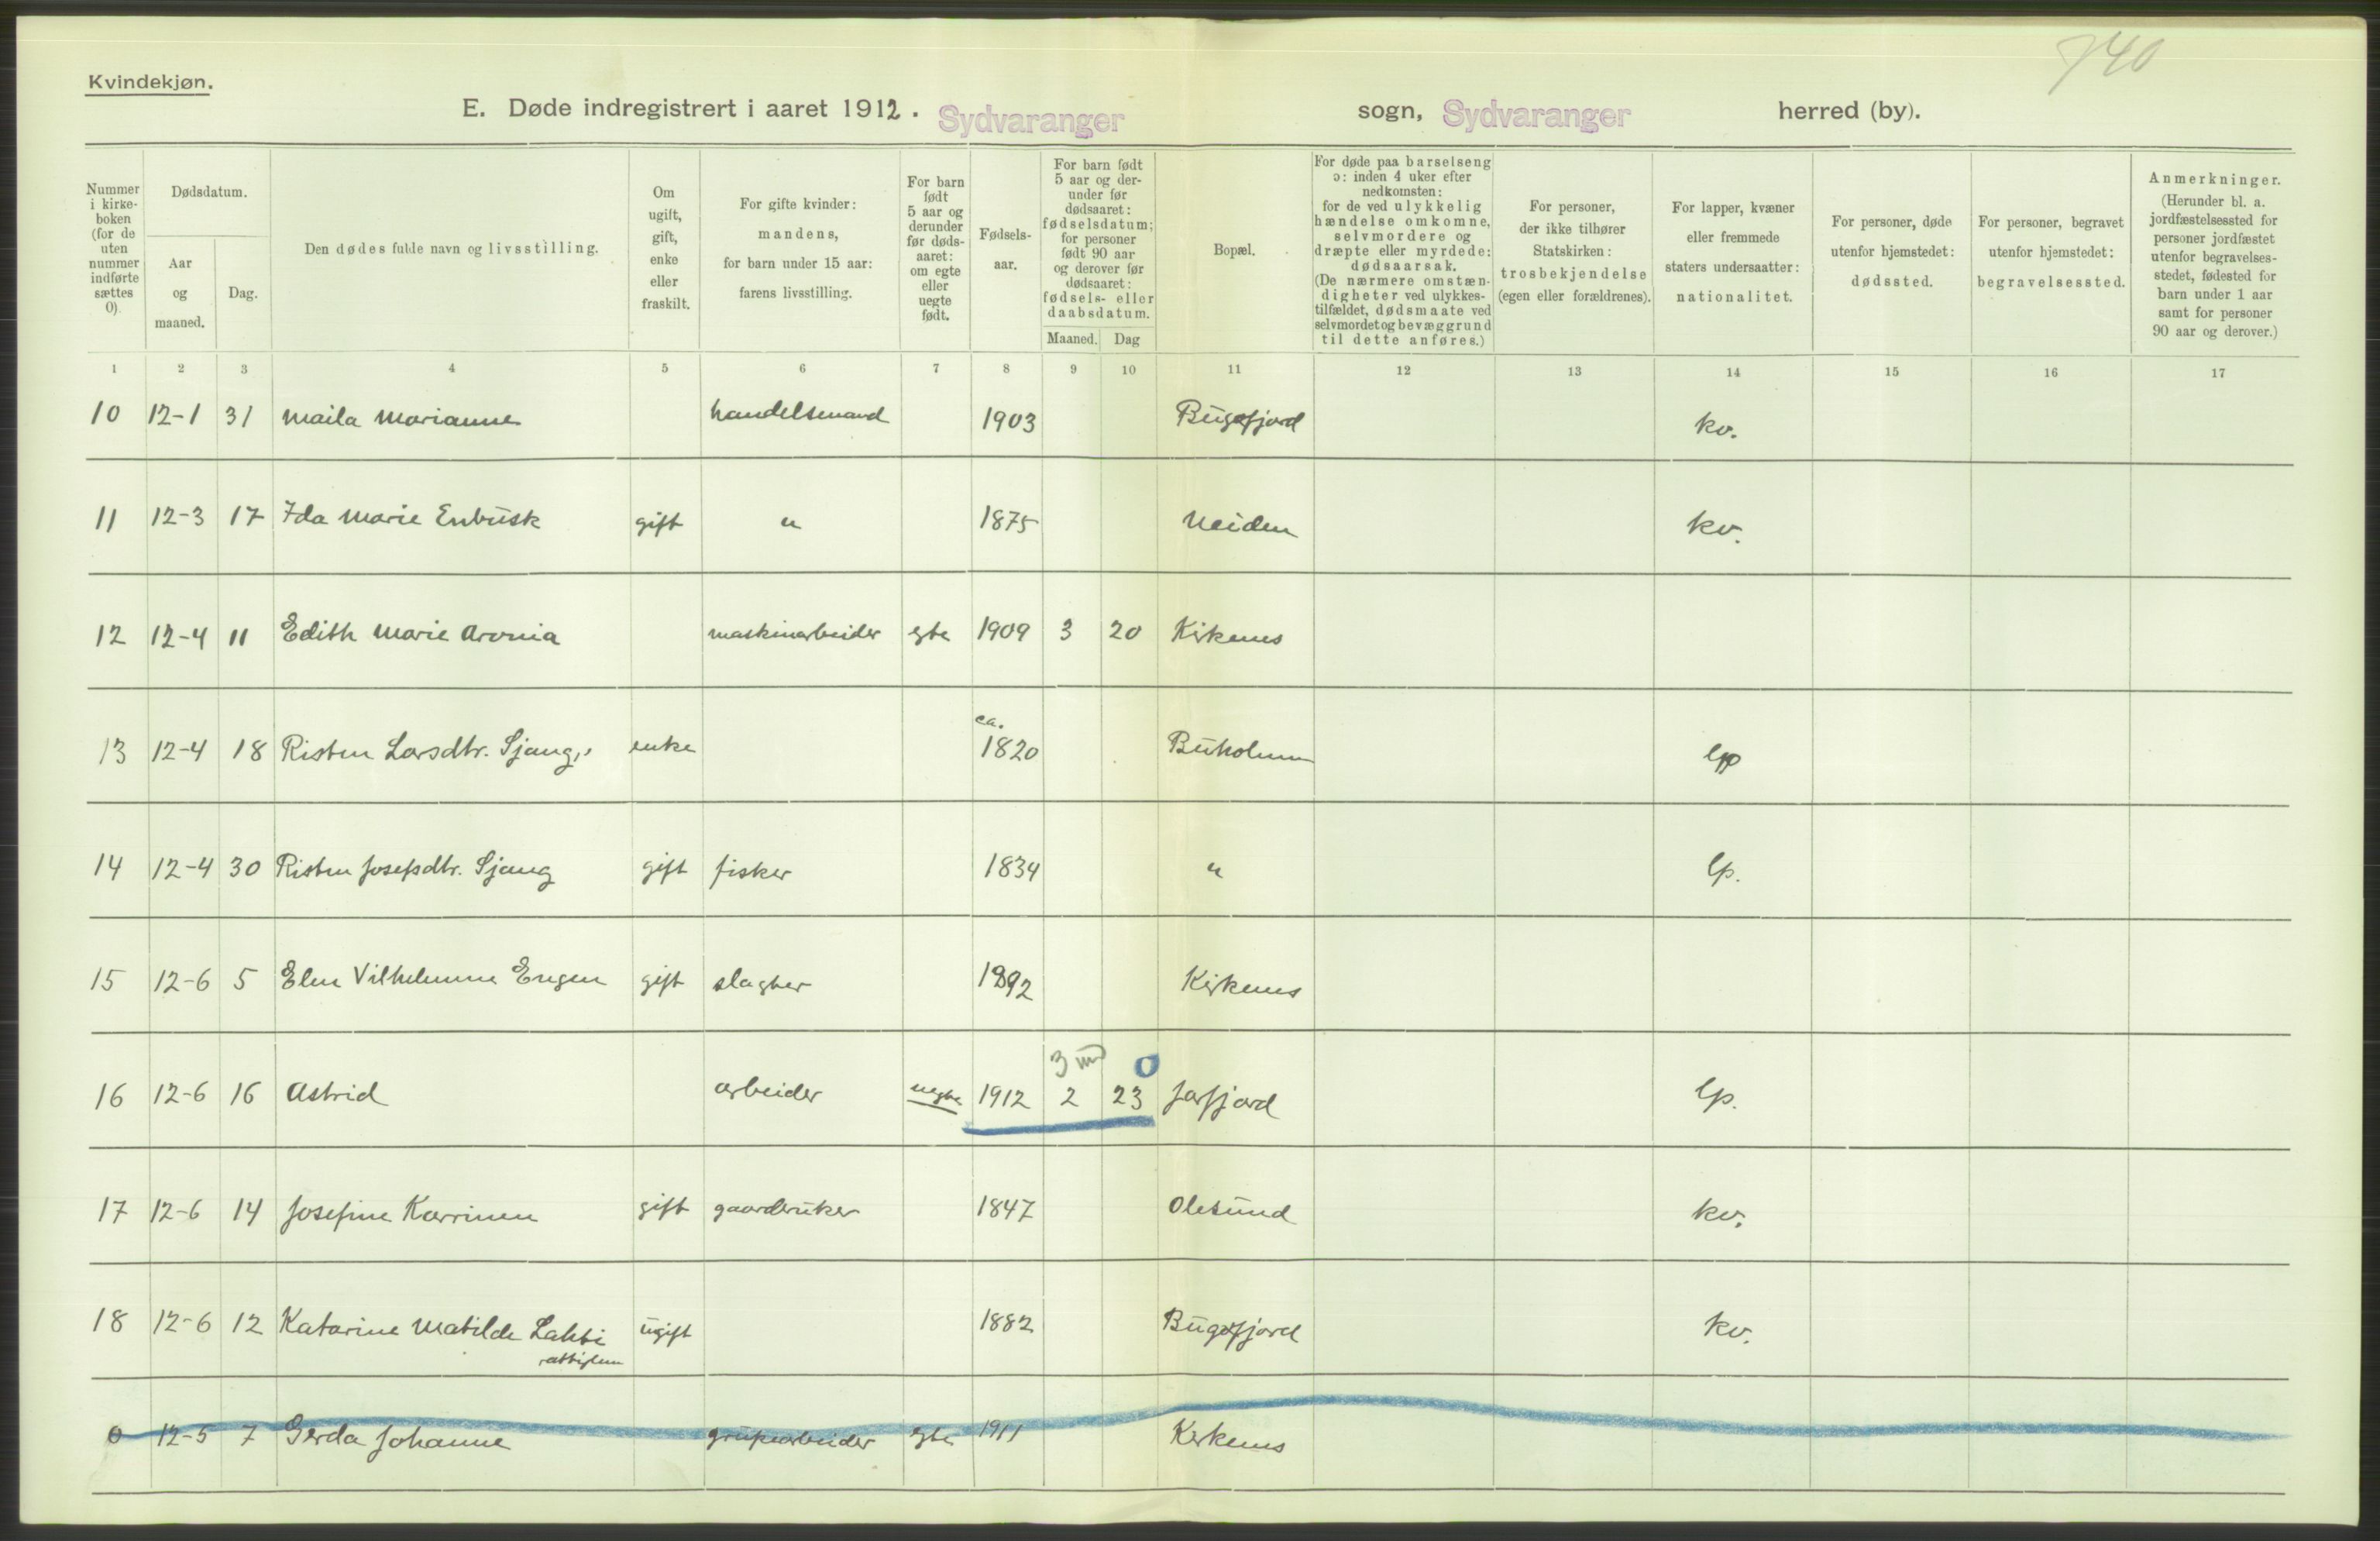 740
Kvindekjøn.
E. Døde indregistrert i aaret 1912. Sydvaranger sogn, Sydvaranger herred (by).
Nummer i kirke-boken (for de uten nummer indførte sættes 0).
Dødsdatum.
Aar og maaned.
Dag.
Den dødes fulde navn og livsstilling.
Om ugift, gift, enke eller fraskilt.
For gifte kvinder: mandens, for barn under 15 aar: farens livsstilling.
For barn født 5 aar og derunder før døds-aaret: om egte eller uegte født.
Fødsels-aar.
For barn født 5 aar og der-under før dødsaaret: fødselsdatum; for personer født 90 aar og derover før dødsaaret: fødsels- eller daabsdatum.
Maaned. Dag
Bopæl.
For døde paa barselseng ɔ: inden 4 uker efter nedkomsten: for de ved ulykkelig hændelse omkomne, selvmordere og dræpte eller myrdede: dødsaarsak. (De nærmere omstæn-digheter ved ulykkes-tilfældet, dødsmaate ved selvmordet og bevæggrund til dette anføres.)
For personer, der ikke tilhører Statskirken: trosbekjendelse (egen eller forældrenes).
For lapper, kvæner eller fremmede staters undersaatter: nationalitet.
For personer, døde utenfor hjemstedet: dødssted.
For personer, begravet utenfor hjemstedet: begravelsessted.
Anmerkninger. (Herunder bl. a. jordfæstelsessted for personer jordfæstet utenfor begravelses-stedet, fødested for barn under 1 aar samt for personer 90 aar og derover.)
1 2 3 4 5 6 7 8 9 10 11 12 13 14 15 16 17
10 12-1 31 Maila Marianne handelsmand 1903 Bugøfjord kv.
11 12-3 17 Ida Marie Enbusk gift " 1875 Neiden kv.
12 12-4 11 Edith Marie Aronia maskinarbeider egte 1909 3 20 Kirkenes
13 12-4 18 Risten Larsdtr. Sjang, enke ca. 1820 Buholmen lp
14 12-4 30 Risten Josefsdtr. Sjang gift fisker 1834 " lp.
15 12-6 5 Elen Vilhelmine Engen gift slagter 1892 Kirkenes
3 m 0
16 12-6 16 Astrid arbeider uegte 1912 2 23 Jarfjord lp.
17 12-6 14 Josefine Karrinen gift gaardbruker 1847 Olesund kv.
18 12-6 12 Katarine Matilde Lahti ugift 1882 Bugøfjord kv.
0 12-5 7 Gerda Johanne grubearbeider egte 1911 Kirkenes